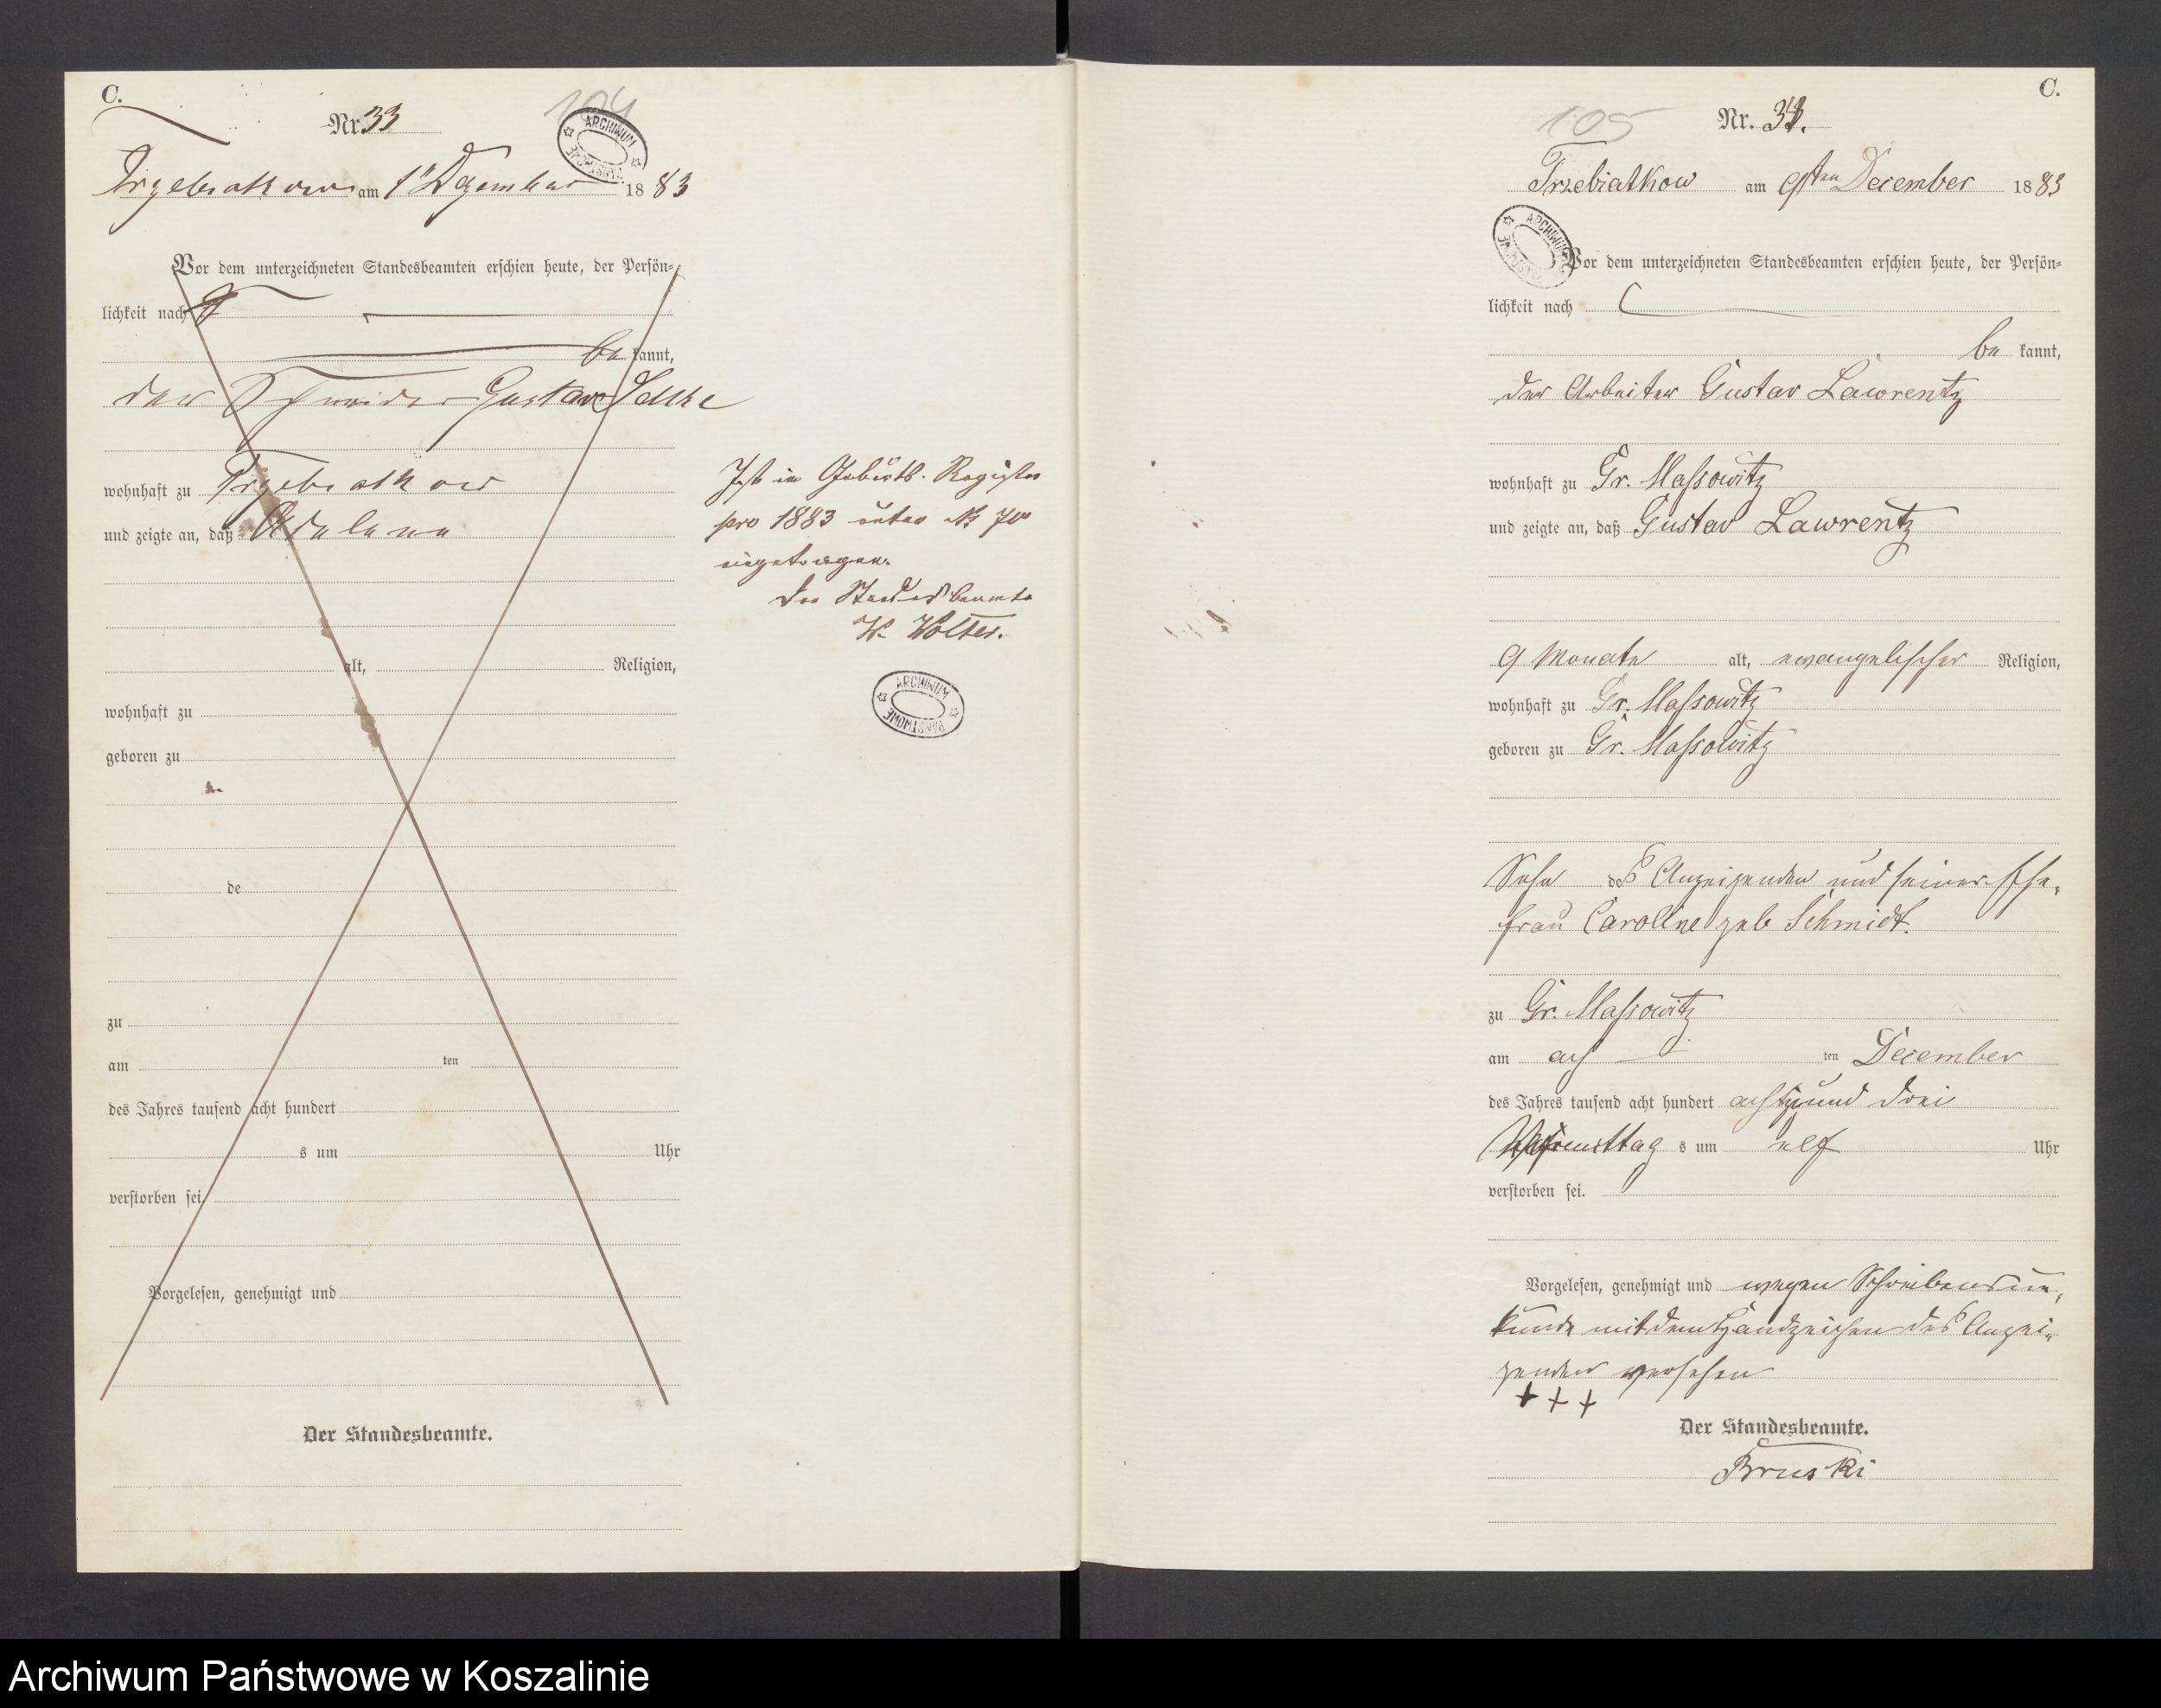 C.
Nr 33
104
ARCHIWUM PAŃSTWOWE
Trzebiatkow am 1" Dezember 1883
Vor dem unterzeichneten Standesbeamten erschien heute, der Persön-
lichkeit nach
be kannt,
der Schneider Gustav
wohnhaft zu Trzebiatkow
und zeigte an, daß
alt, Religion,
wohnhaft zu
geboren zu
de
zu
am ten
des Jahres tausend acht hundert
s um Uhr
verstorben sei.
Vorgelesen, genehmigt und
Der Standesbeamte.
Ist im Geburts-Register
pro 1883 unter № 70
eingetragen.
Der Standesbeamte
W. Wolter.
ARCHIWUM PAŃSTWOWE
C.
105
Nr. 33.
Trzebiatkow am 9ten December 1883
ARCHIWUM PAŃSTWOWE
Vor dem unterzeichneten Standesbeamten erschien heute, der Persön-
lichkeit nach
be kannt,
der Arbeiter Gustav Lawrentz
wohnhaft zu Gr. Massowitz
und zeigte an, daß Gustav Lawrentz
9 Monate alt, evangelischer Religion,
wohnhaft zu Gr. Massowitz
geboren zu Gr. Massowitz
Sohn des Anzeigenden und seiner Ehe-
frau Caroline geb Schmidt.
zu Gr. Massowitz
am ach ten December
des Jahres tausend acht hundert achtzig und drei
s um elf Uhr
verstorben sei.
Vorgelesen, genehmigt und wegen Schreibensun-
kunde mit dem Handzeichen des Anzei-
genden versehen
+ + +
Der Standesbeamte.
Bruski
Archiwum Państwowe w Koszalinie